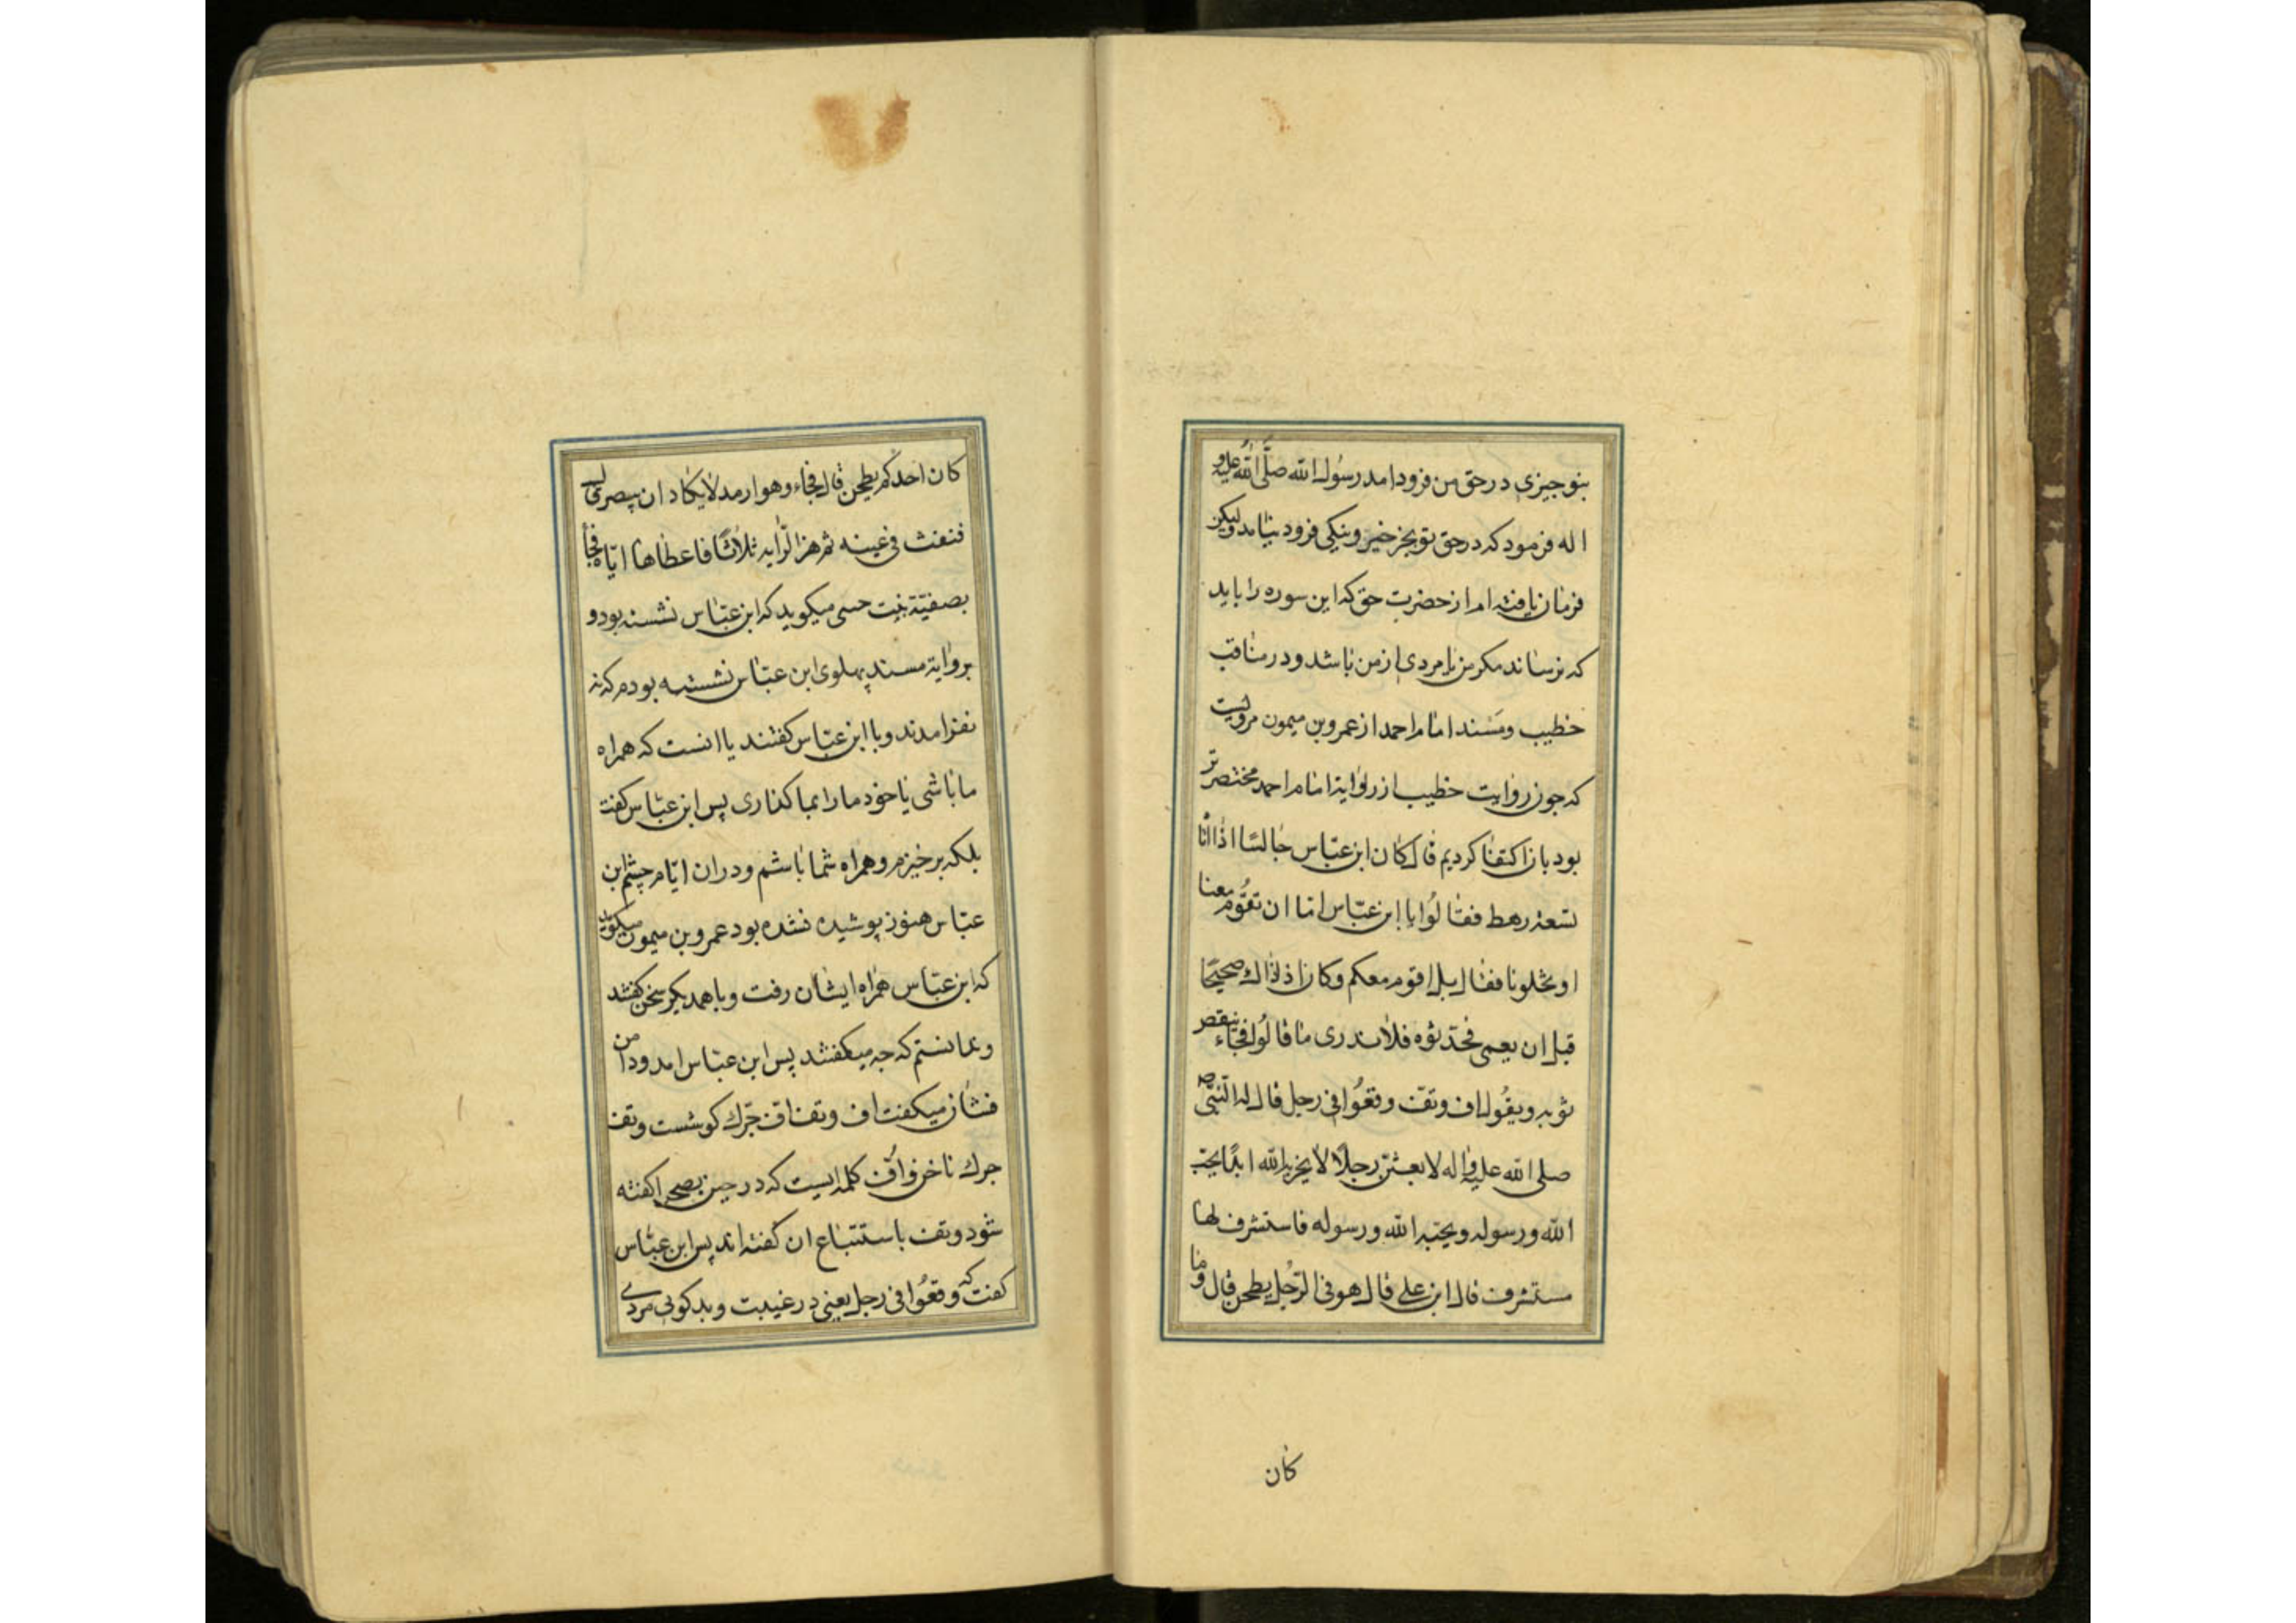 بتو جیزی در حق من فرود امد رسول الله صلی الله علیه و
اله فرمود که در حق تو بجز خیر و نیکی فرود نیامد ولیکن
فرمان یافته ام از حضرت حق که این سوره را باید
که نرساند مکر من یا مردی از من باشد و در مناقب
خطیب و مسند امام احمد از عمرو بن میمون مرویست
که جون روایت خطیب از روایة امام احمد مختصرتر
بود بان اکتفا کردیم قال کان ابن عباس جالسا اذا اتا
تسعة رهط فقالوا یا ابن عباس اما ان تقوم معنا
او تخلونا فقال بل اقوم معکم و کان اذ ذاك صحیحا
قبل ان یعمی فحدثوه فلا ندری ما قالوا فجاء ینفض
ثوبه و یقول اف و تف وقعوا فی رجل قال له النبی ص
صلی الله علیه و اله لا بعثن رجلا لا یخزیه الله ابدا یحب
الله و رسوله و یحبه الله و رسوله فاستشرف لها
مستشرف قال ابن علی قال هو فی الرجل یطحن قال و ما
کان
کان احدکم یطحن قال فجاء و هو ارمد لا یکاد ان یبصر قال
فنفث فی عینه ثم هز الرایه ثلاثا فاعطاها ایاه فجا
بصفیة بنت حیی میکوید که ابن عباس نشسته بود و
بروایة مسند پهلوی ابن عباس نشسته بودم که نه
نفر امدند و با ابن عباس کفتند یا انست که همراه
ما باشی یا خود ما را بما کذاری پس ابن عباس کفت
بلکه برخیزم و همراه شما باشم و در ان ایام چشم ابن
عباس هنوز پوشیده نشده بود عمرو بن میمون میکوید
که ابن عباس همراه ایشان رفت و با همدیکر سخن کفتند
و ندانستم که جه میکفتند پس ابن عباس امد و دامن
فشان میکفت اف و تف اف جرك کوشست و تف
جرك ناخن و اف کلمه ایست که در حین کفته
شود و تف باستتباع ان کفته اند پس ابن عباس
کفت که وقعوا فی رجل یعنی در غیبت و بدکوئی مردی